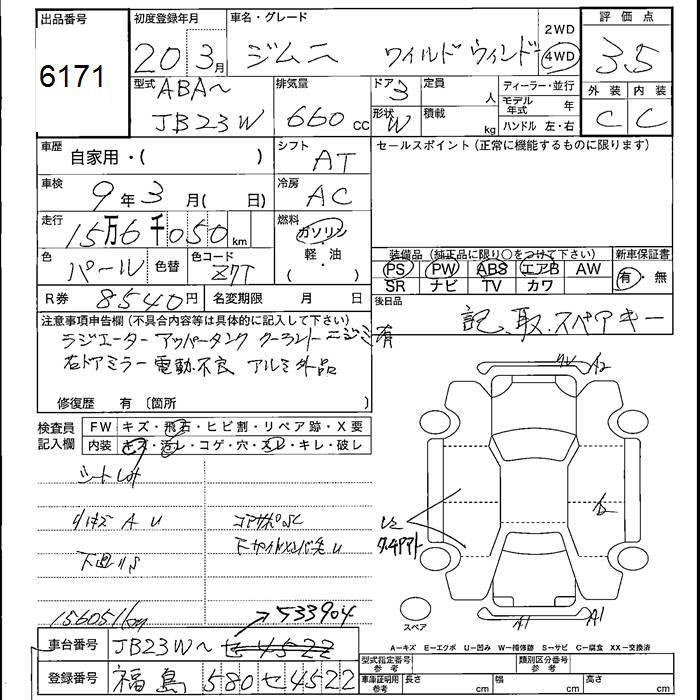 出品番号
6171
初度登録年月
20 3月
車名・グレード
ジムニ ワイルドウィンド
2WD
4WD
評価点
3.5
型式
ABA~
JB23W
排気量
660 cc
ドア 3
形状 W
定員 人
積載 kg
ディーラー・並行
モデル年式 年
ハンドル 左・右
外装 内装
C C
車歴
自家用・( )
シフト
AT
セールスポイント (正常に機能するものに限ります)
車検
9年 3月( 日)
冷房
AC
走行
15万6千050 km
燃料
ガソリン
軽・油
( )
色
パール
色替
色コード
Z7T
装備品 (純正品に限り○をつけて下さい)
新車保証書
PS PW ABS エアB AW
SR ナビ TV カワ
有・無
R券 8540円
名変期限 月 日
後日品
記、取、スペアキー
注意事項申告欄 (不具合内容等は具体的に記入して下さい)
ラジエーター アッパータンク クーラント ニジミ有
右ドアミラー 電動不良 アルミ外品
修復歴 有 〔箇所 〕
検査員記入欄
FW キズ・飛石・ヒビ割・リペア跡・X要
内装 キズ・汚レ・コゲ・穴・スレ・キレ・破レ
A U
コアサポSC
下廻りS
156051km
533904
A1
スペア
車台番号 JB23W~
登録番号 福島 580 セ 4522
A-キズ E-エクボ U-凹み W-補修跡 S-サビ C-腐食 XX-交換済
型式指定番号 参考
類別区分番号 参考
車庫証明用 参考
長さ cm
幅 cm
高さ cm